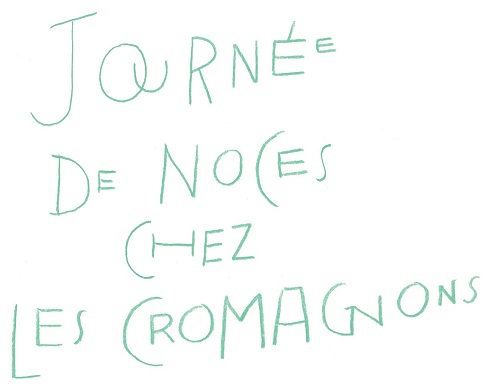 JOURNÉE
DE NOCES
CHEZ
LES CROMAGNONS